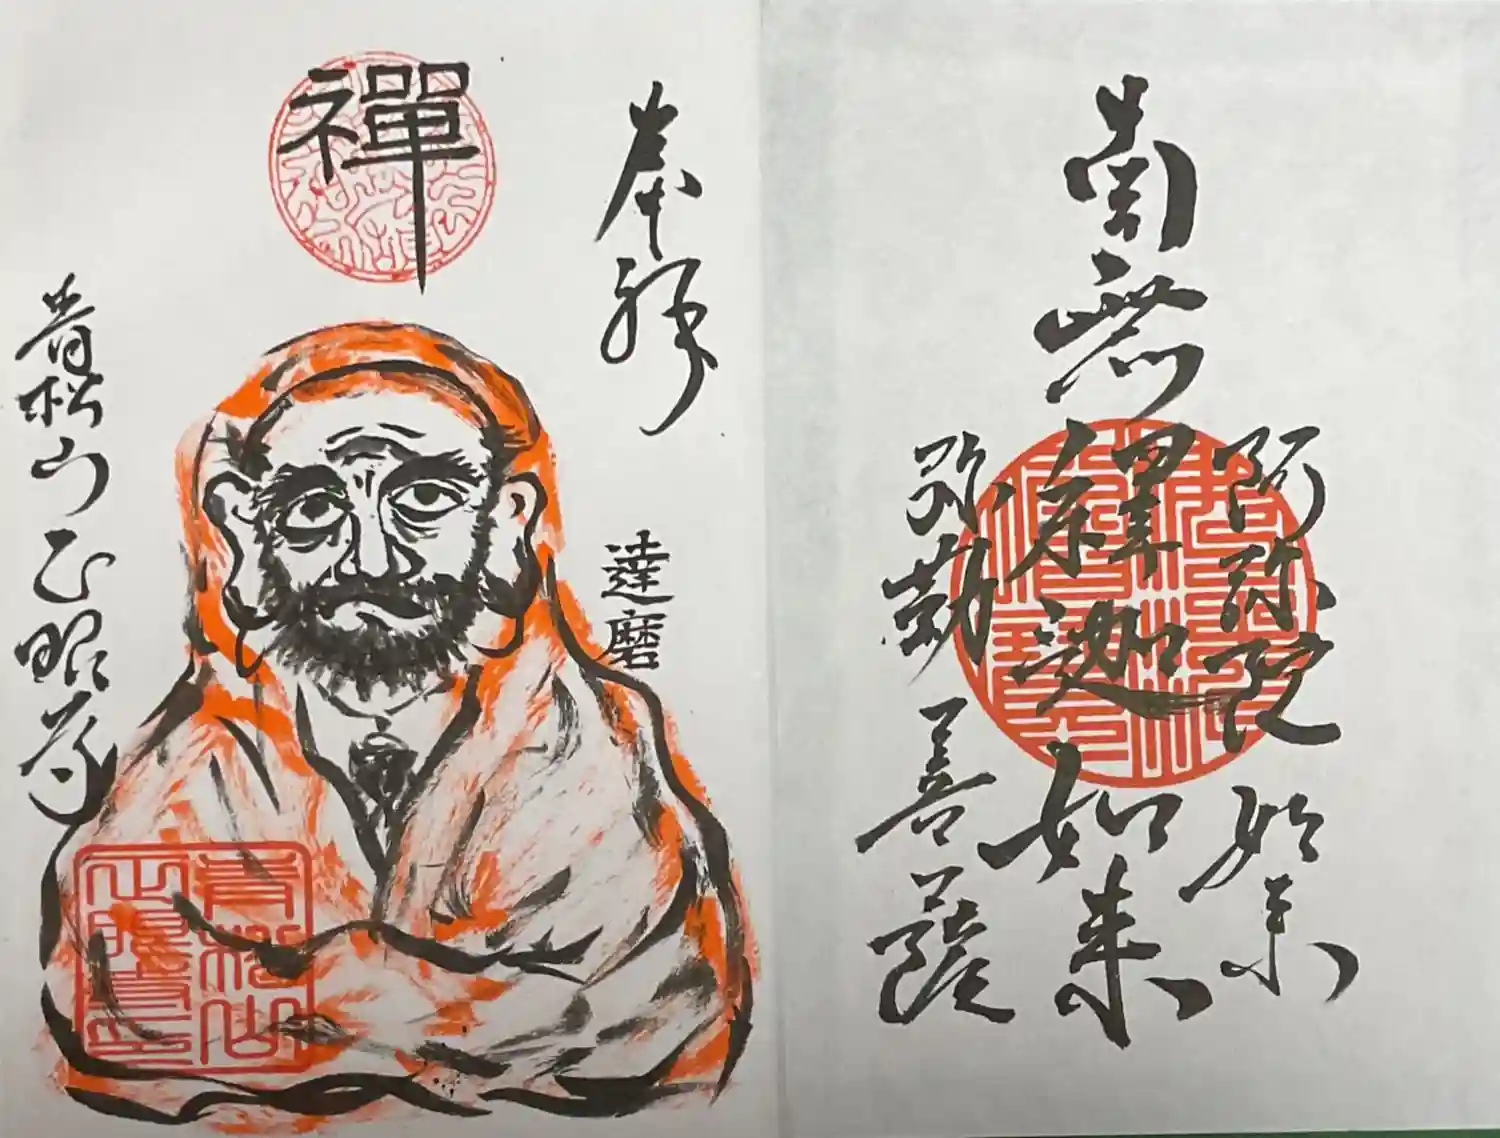 阿弥陀如来
南無釋迦如来
弥勒菩薩
奉拝
達磨
禪
青松山正眼寺
青松山
正眼寺印